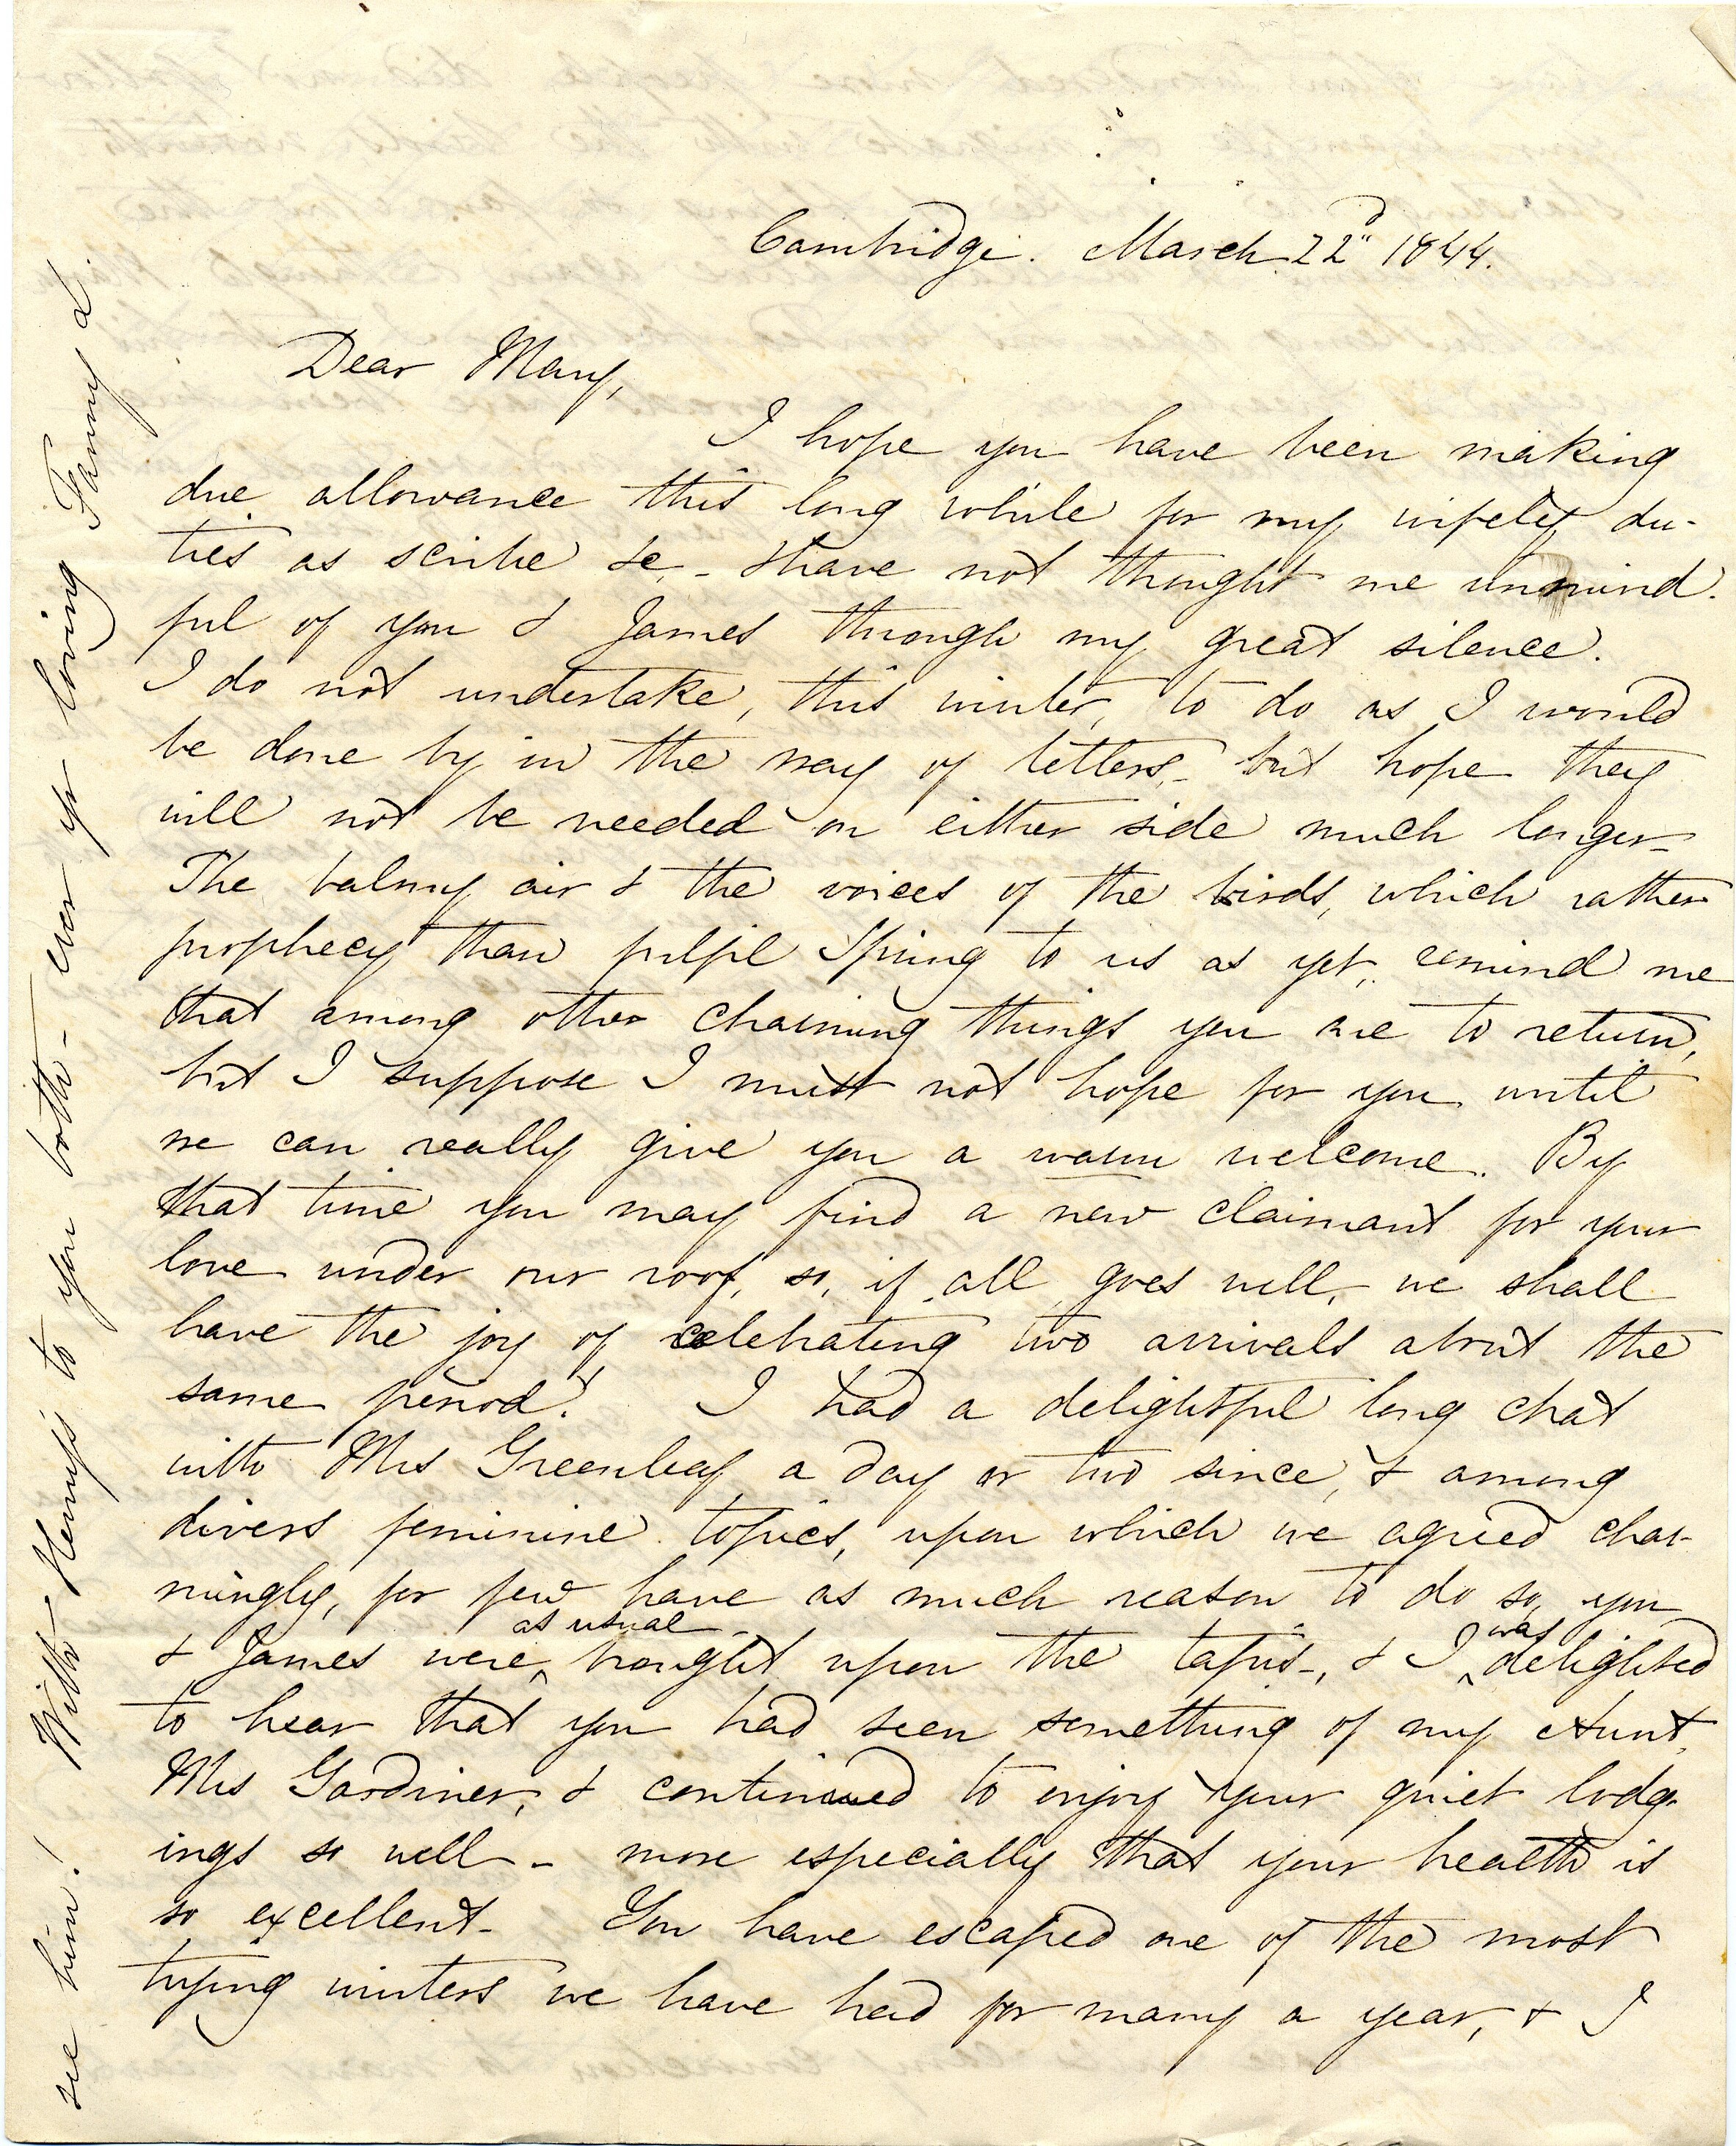 Cambridge. March 22d 1844.
Dear Mary,
I hope you have been making
due allowance this long while for my wifely du-
ties as scribe &c, - & have not thought me unmind-
ful of you & James through my great silence.
I do not undertake, this winter, to do as I would
be done by in the way of letters - but hope they
will not be needed on either side much longer -
The balmy air & the voices of the birds, which rather
prophecy than fulfil Spring to us as yet, remind me
that among other charming things you are to return,
but I suppose I must not hope for you until
we can really give you a warm welcome. By
that time you may find a new claimant for your
love under our roof, so, if all goes well, we shall
have the joy of celebrating two arrivals about the
same period! I had a delightful long chat
with Mrs Greenleaf a day or two since, & among
divers feminine topics, upon which we agreed char-
mingly, for few have as much reason to do so, you
& James were as usual brought upon the tapis -, & I was delighted
to hear that you had seen something of my Aunt,
Mrs Gardiner, & continued to enjoy your quiet lodg-
ings so well - more especially that your health is
so excellent - You have escaped one of the most
trying winters we have had for many a year, & I
see him! With Henry's to you both - ever yr loving Fanny L.